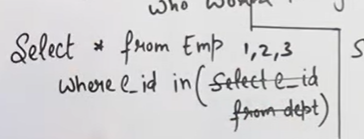 Who
Select * from Emp 1,2,3
where e_id in (select e_id
from dept)
S